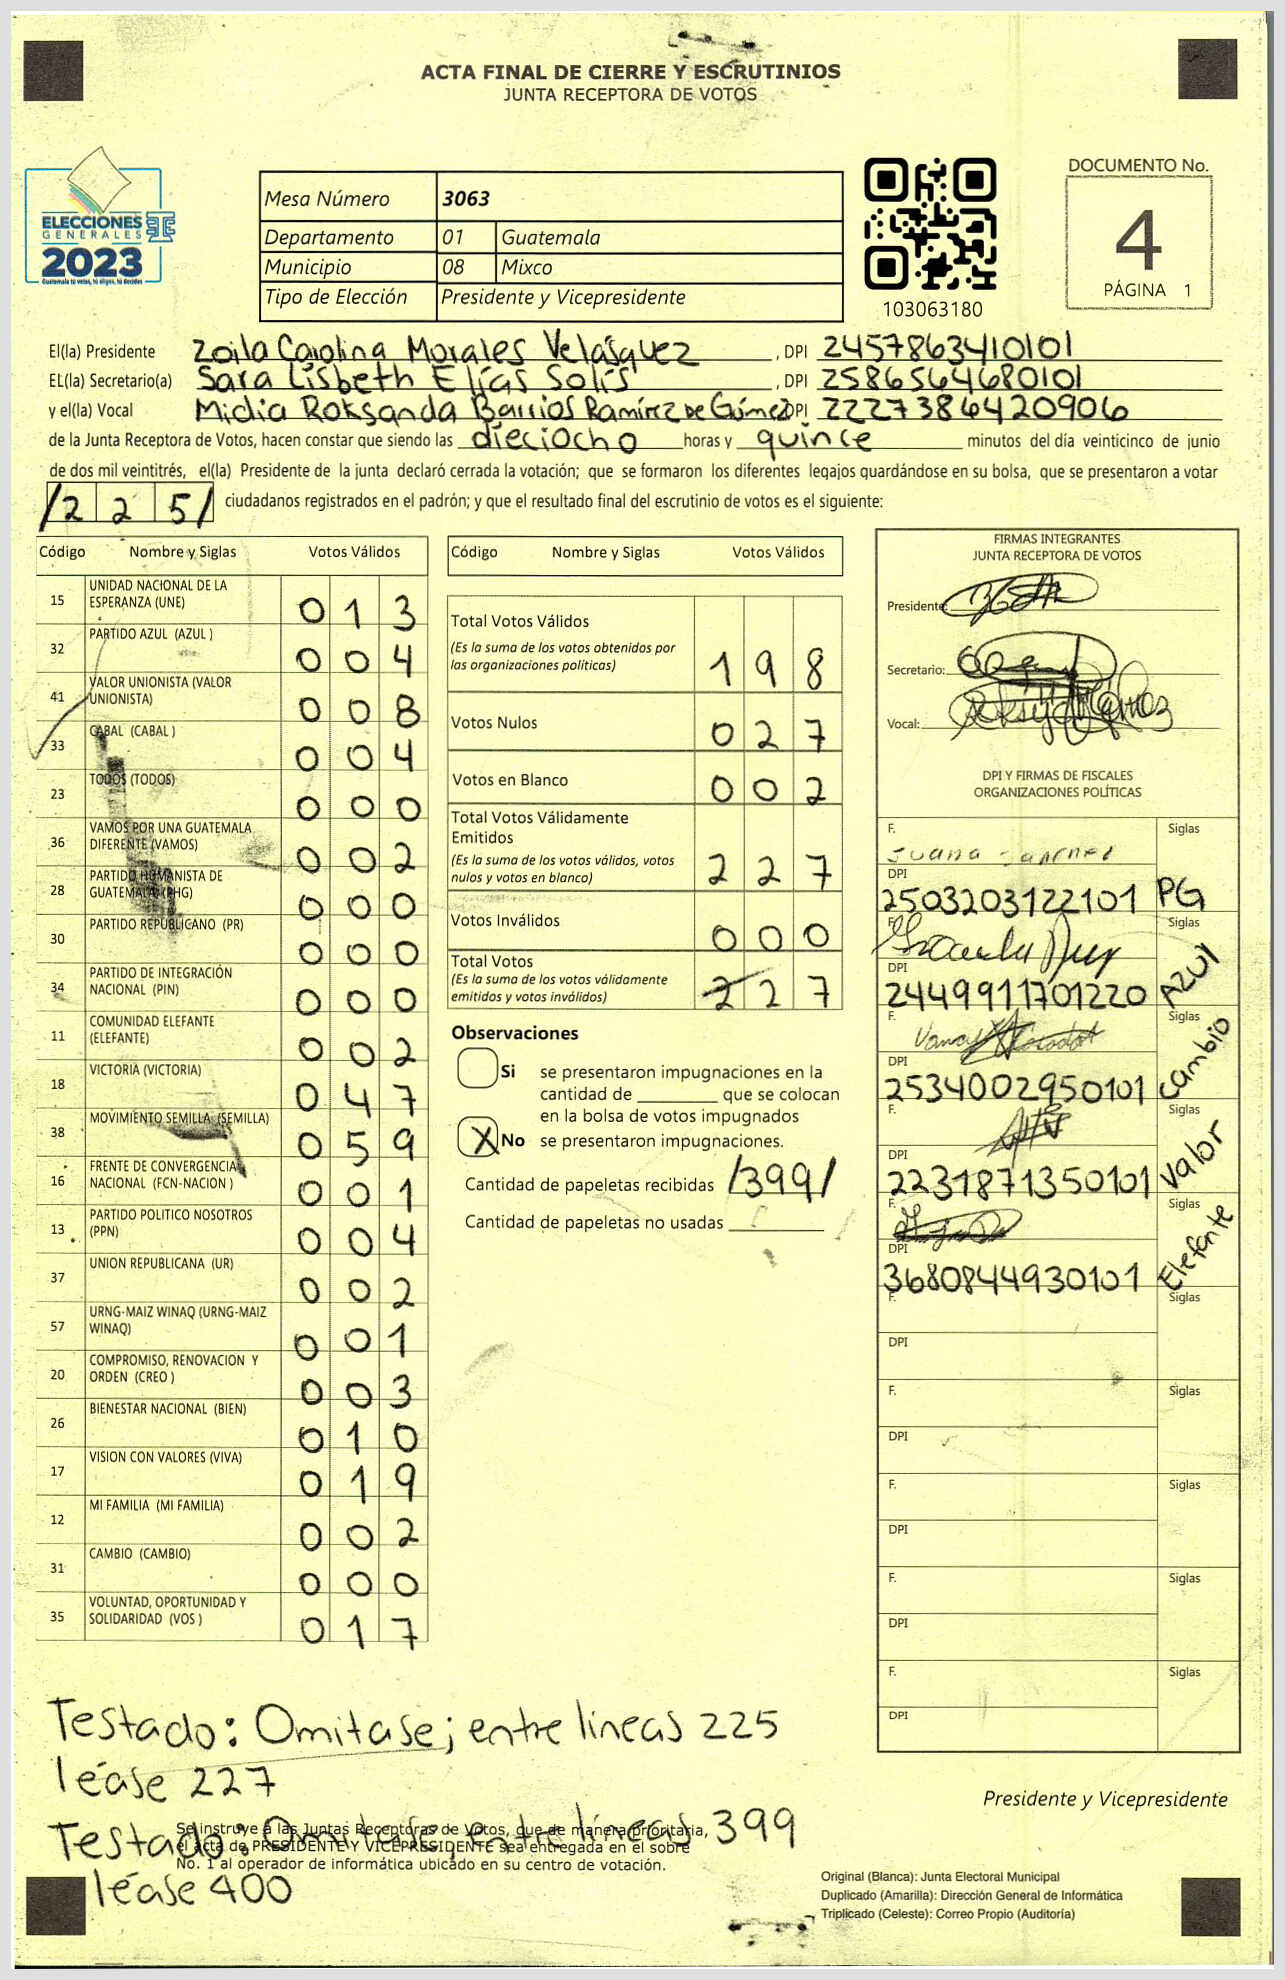 ACTA FINAL DE CIERRE Y ESCRUTINIOS
JUNTA RECEPTORA DE VOTOS
ELECCIONES
GENERALES
2023
Guatemala tú votas, tú eliges, tú decides
Mesa Número 3063
Departamento 01 Guatemala
Municipio 08 Mixco
Tipo de Elección Presidente y Vicepresidente
103063180
DOCUMENTO No.
4
PÁGINA 1
El(la) Presidente Zoila Carolina Morales Velásquez, DPI 2457863410101
EL(la) Secretario(a) Sara Lisbeth Elías Solís, DPI 2586564680101
y el(la) Vocal Midia Roksanda Barrios Ramírez de Gómez DPI 2227386420906
de la Junta Receptora de Votos, hacen constar que siendo las dieciocho horas y quince minutos del día veinticinco de junio
de dos mil veintitrés, el(la) Presidente de la junta declaró cerrada la votación; que se formaron los diferentes legajos quardándose en su bolsa, que se presentaron a votar
/225/ ciudadanos registrados en el padrón; y que el resultado final del escrutinio de votos es el siguiente:
Código Nombre y Siglas Votos Válidos
15 UNIDAD NACIONAL DE LA ESPERANZA (UNE) 013
32 PARTIDO AZUL (AZUL ) 004
41 VALOR UNIONISTA (VALOR UNIONISTA) 008
33 CABAL (CABAL ) 004
23 TODOS (TODOS) 000
36 VAMOS POR UNA GUATEMALA DIFERENTE (VAMOS) 002
28 PARTIDO HUMANISTA DE GUATEMALA (PHG) 000
30 PARTIDO REPUBLICANO (PR) 000
34 PARTIDO DE INTEGRACIÓN NACIONAL (PIN) 000
11 COMUNIDAD ELEFANTE (ELEFANTE) 002
18 VICTORIA (VICTORIA) 047
38 MOVIMIENTO SEMILLA (SEMILLA) 059
16 FRENTE DE CONVERGENCIA NACIONAL (FCN-NACION ) 001
13 PARTIDO POLITICO NOSOTROS (PPN) 004
37 UNION REPUBLICANA (UR) 002
57 URNG-MAIZ WINAQ (URNG-MAIZ WINAQ) 001
20 COMPROMISO, RENOVACION Y ORDEN (CREO ) 003
26 BIENESTAR NACIONAL (BIEN) 010
17 VISION CON VALORES (VIVA) 019
12 MI FAMILIA (MI FAMILIA) 002
31 CAMBIO (CAMBIO) 000
35 VOLUNTAD, OPORTUNIDAD Y SOLIDARIDAD (VOS ) 017
Código Nombre y Siglas Votos Válidos
Total Votos Válidos
(Es la suma de los votos obtenidos por
las organizaciones políticas) 198
Votos Nulos 027
Votos en Blanco 002
Total Votos Válidamente
Emitidos
(Es la suma de los votos válidos, votos
nulos y votos en blanco) 227
Votos Inválidos 000
Total Votos
(Es la suma de los votos válidamente
emitidos y votos inválidos) 227
Observaciones
Si se presentaron impugnaciones en la
cantidad de ________ que se colocan
en la bolsa de votos impugnados
X No se presentaron impugnaciones.
Cantidad de papeletas recibidas /399/
Cantidad de papeletas no usadas
FIRMAS INTEGRANTES
JUNTA RECEPTORA DE VOTOS
Presidente:
Secretario:
Vocal:
DPI Y FIRMAS DE FISCALES
ORGANIZACIONES POLÍTICAS
F. Juana Siglas
DPI 2503203122101 PG
F. Siglas
DPI 2449911701220 AZUl
F. Siglas
DPI 2534002950101 Cambio
F. Siglas
DPI 2231871350101 Valor
F. Siglas
DPI 3680844930101 Elefante
F. Siglas
DPI
F. Siglas
DPI
F. Siglas
DPI
F. Siglas
DPI
F. Siglas
DPI
Testado: Omitase; entre líneas 225
léase 227
Testado: Omitase, entre líneas 399
léase 400
Se instruye a las Juntas Receptoras de Votos, que de manera prioritaria,
el acta de PRESIDENTE Y VICEPRESIDENTE sea entregada en el sobre
No. 1 al operador de informática ubicado en su centro de votación.
Presidente y Vicepresidente
Original (Blanca): Junta Electoral Municipal
Duplicado (Amarilla): Dirección General de Informática
Triplicado (Celeste): Correo Propio (Auditoría)